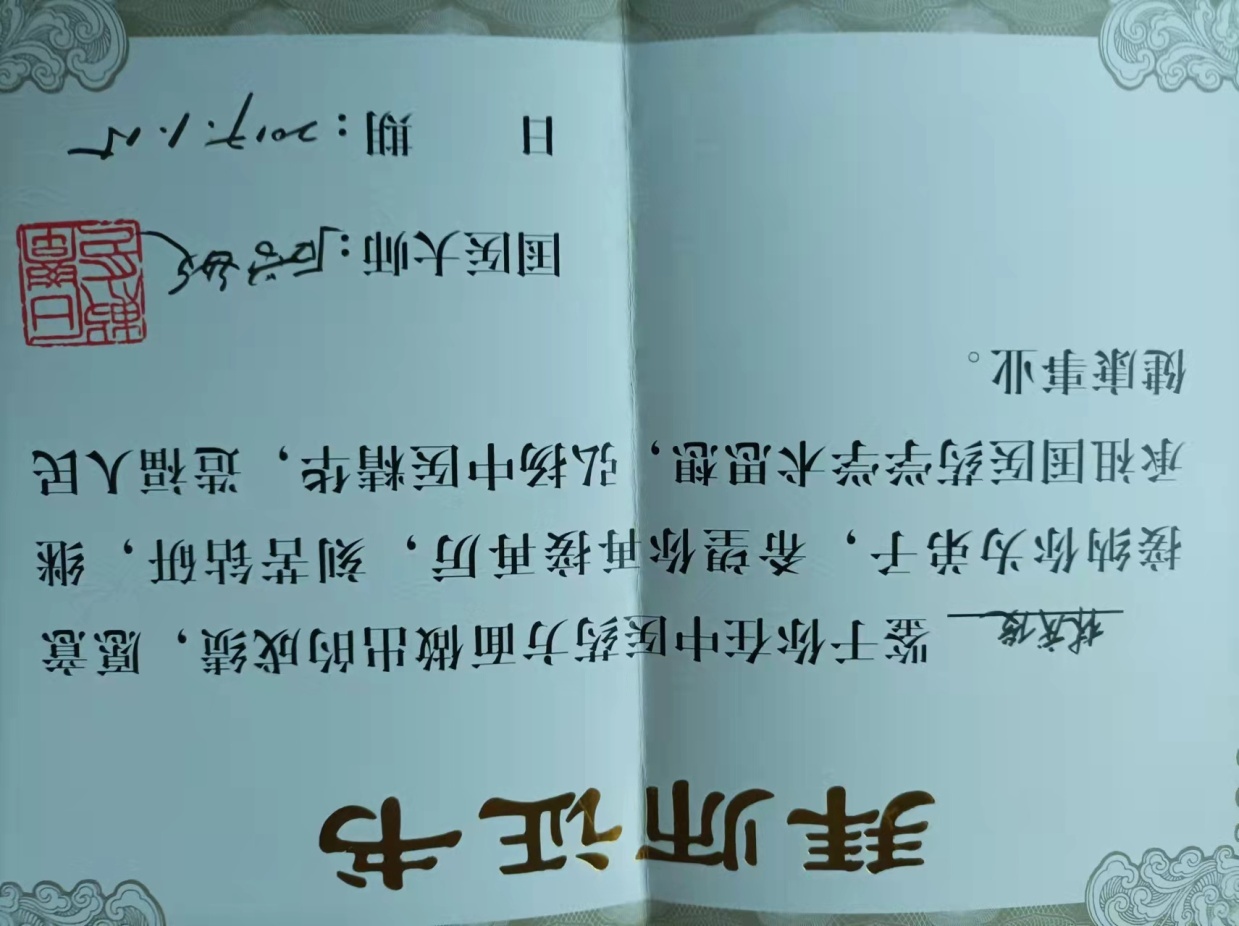 拜师证书
鉴于你在中医药方面做出的成绩，愿意
接纳你为弟子，希望你再接再厉，刻苦钻研，继
承祖国医药学学术思想，弘扬中医精华，造福人民
健康事业。
国医大师：石学敏
日 期：